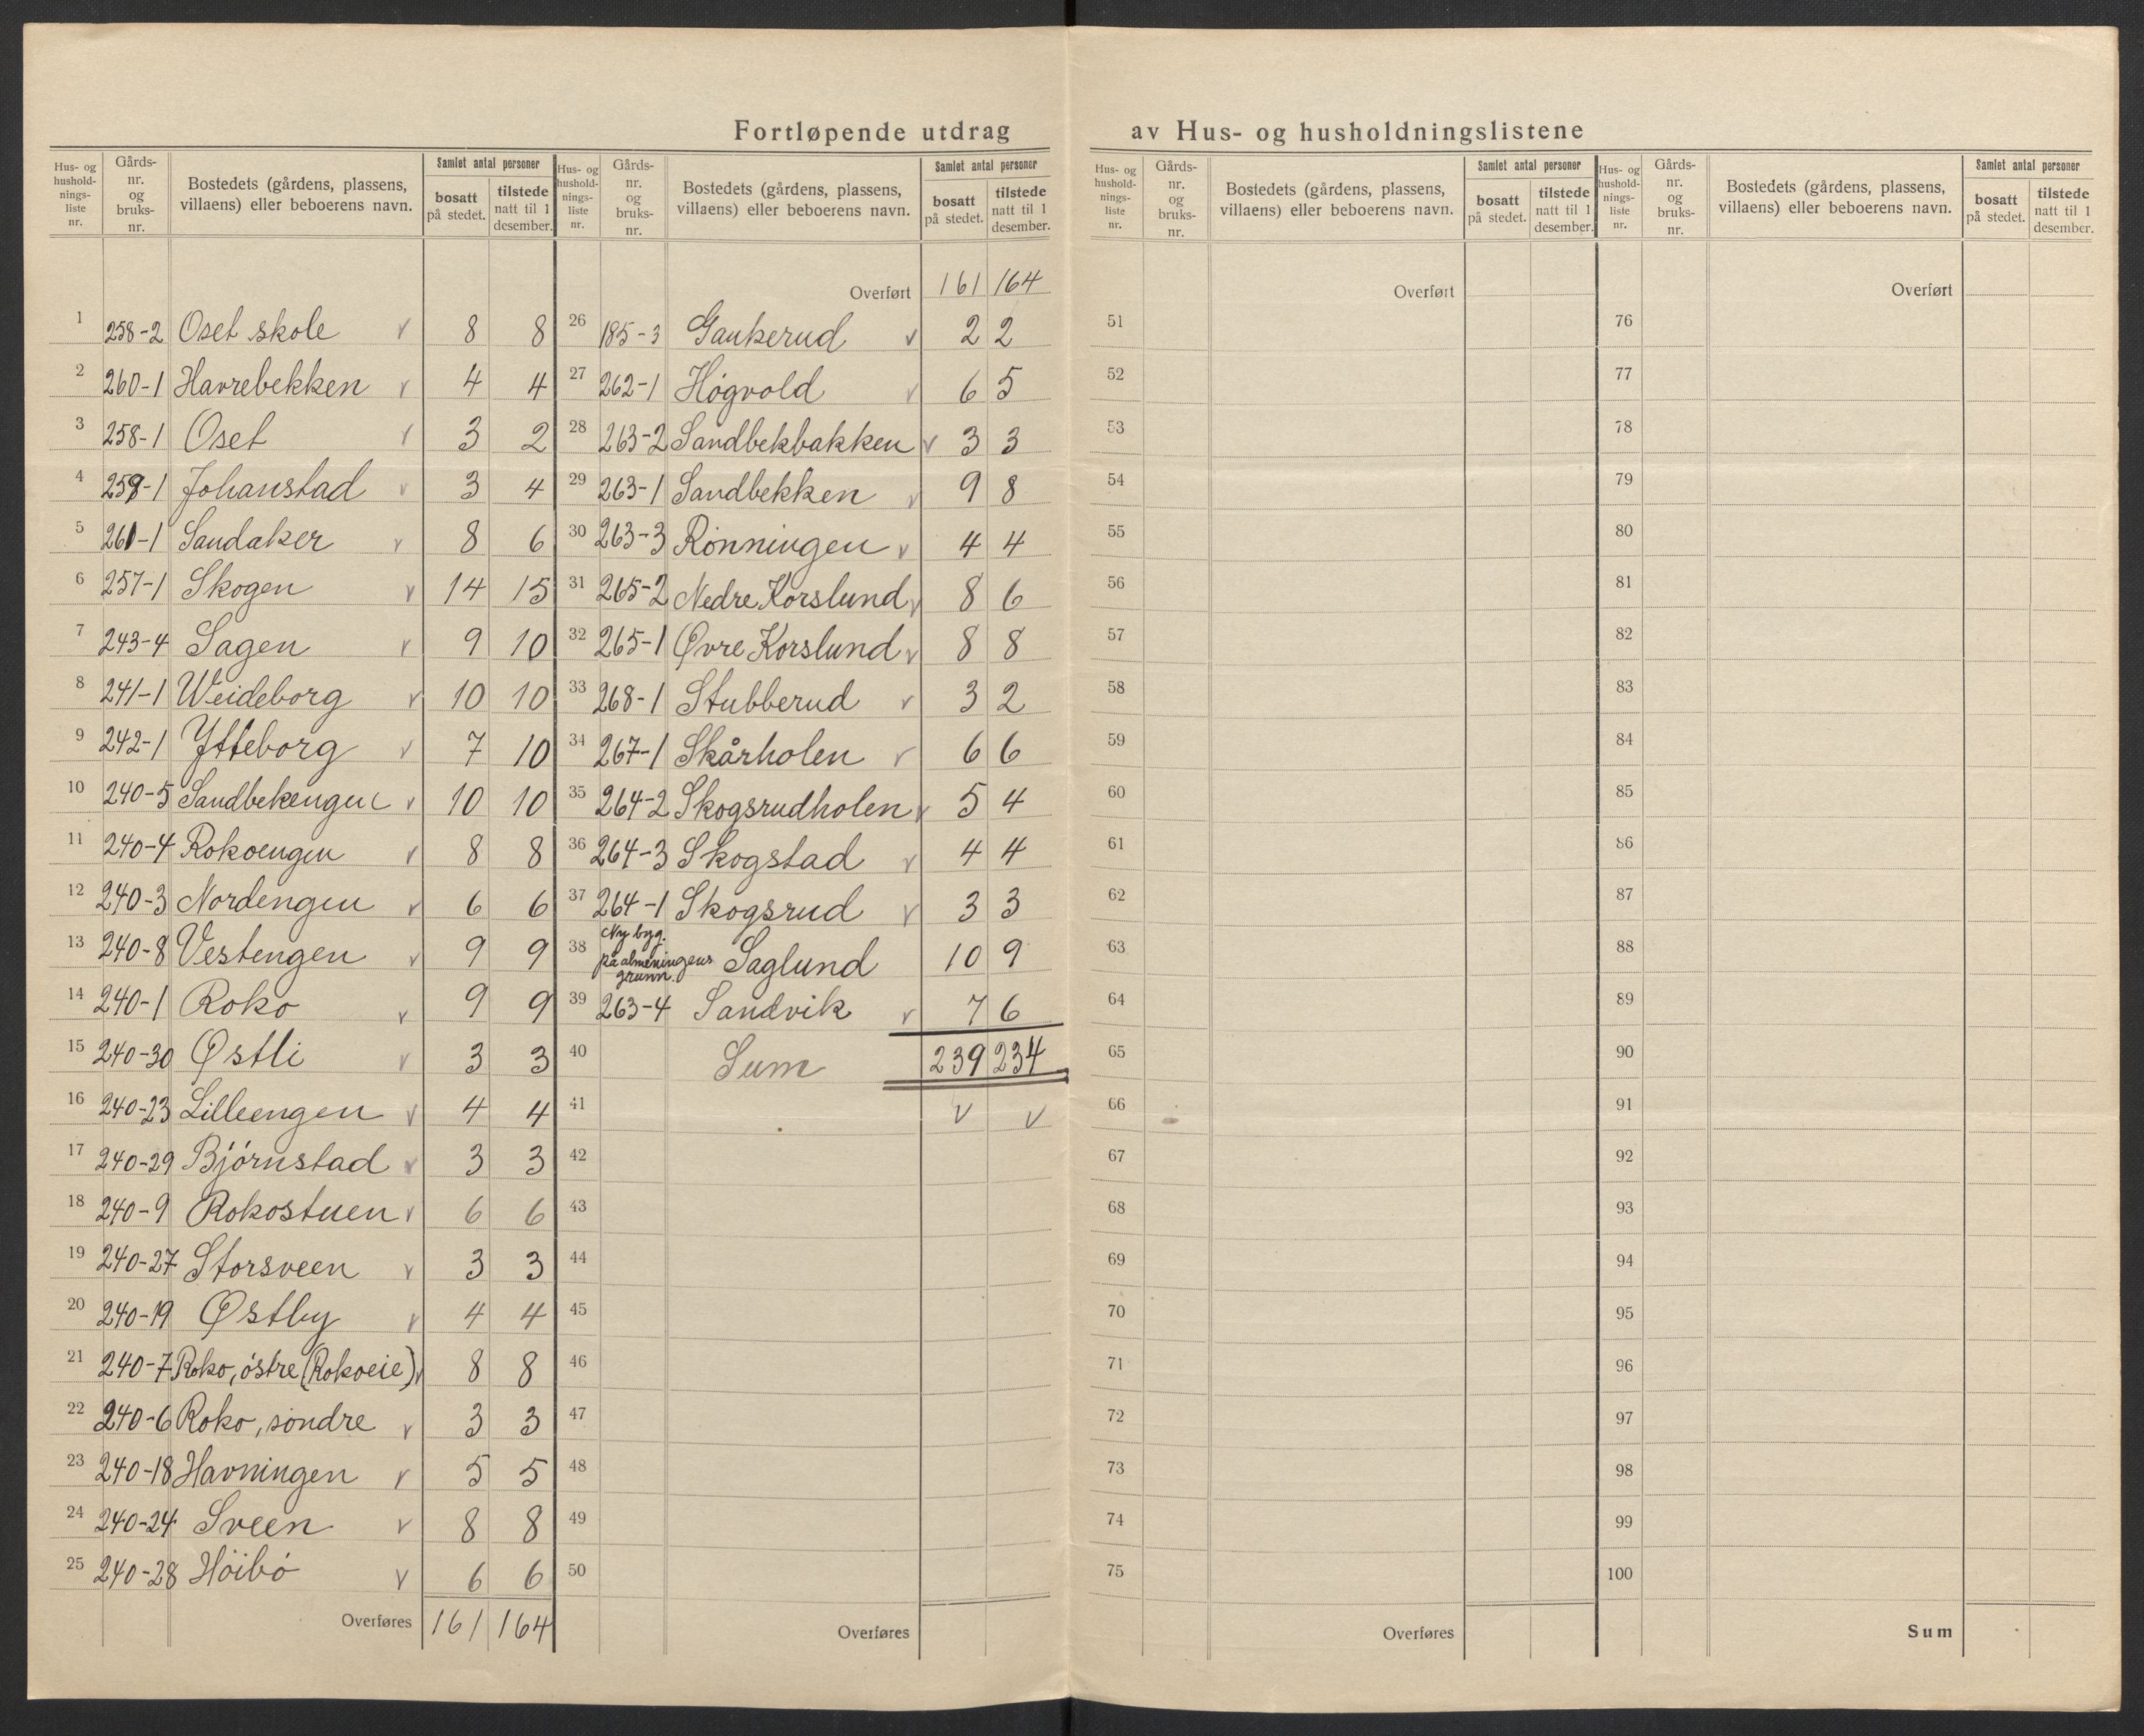 Fortløpende utdrag av Hus- og husholdningslistene
Hus- og
hushold-
nings-
liste
nr.
Gårds-
nr.
og
bruks-
nr.
Bostedets (gårdens, plassens,
villaens) eller beboerens navn.
Samlet antal personer
bosatt
på stedet.
tilstede
natt til 1
desember.
1 258-2 Oset skole v 8 8
2 260-1 Havrebekken v 4 4
3 258-1 Oset v 3 2
4 259-1 Johanstad v 3 4
5 261-1 Sandaker v 8 6
6 257-1 Skogen v 14 15
7 243-4 Sagen v 9 10
8 241-1 Weideborg v 10 10
9 242-1 Ytteborg v 7 10
10 240-5 Sandbekengen v 10 10
11 240-4 Rokoengen v 8 8
12 240-3 Nordengen v 6 6
13 240-8 Vestengen v 9 9
14 240-1 Roko v 9 9
15 240-30 Østli v 3 3
16 240-23 Lilleengen v 4 4
17 240-29 Bjørnstad v 3 3
18 240-9 Rokostuen v 6 6
19 240-27 Storsveen v 3 3
20 240-19 Østby v 4 4
21 240-7 Roko, østre (Rokoeie) v 8 8
22 240-6 Roko, søndre v 3 3
23 240-18 Havningen v 5 5
24 240-24 Sveen v 8 8
25 240-28 Höibö v 6 6
Overføres 161 164
Hus- og
hushold-
nings-
liste
nr.
Gårds-
nr.
og
bruks-
nr.
Bostedets (gårdens, plassens,
villaens) eller beboerens navn.
Samlet antal personer
bosatt
på stedet.
tilstede
natt til 1
desember.
Overført 161 164
26 185-3 Gaukerud v 2 2
27 262-1 Högvold v 6 5
28 263-2 Sandbekbakken v 3 3
29 263-1 Sandbekken v 9 8
30 263-3 Rönningen v 4 4
31 265-2 Nedre Korslund v 8 6
32 265-1 Øvre Korslund v 8 8
33 268-1 Stubberud v 3 2
34 267-1 Skårholen v 6 6
35 264-2 Skogsrudholen v 5 4
36 264-3 Skogstad v 4 4
37 264-1 Skogsrud v 3 3
38 Ny byg.
på almeningens
grunn. Saglund 10 9
39 263-4 Sandvik v 7 6
40 Sum 239 234
41 v v
42
43
44
45
46
47
48
49
50
Overføres
Hus- og
hushold-
nings-
liste
nr.
Gårds-
nr.
og
bruks-
nr.
Bostedets (gårdens, plassens,
villaens) eller beboerens navn.
Samlet antal personer
bosatt
på stedet.
tilstede
natt til 1
desember.
Overført
51
52
53
54
55
56
57
58
59
60
61
62
63
64
65
66
67
68
69
70
71
72
73
74
75
Overføres
Hus- og
hushold-
nings-
liste
nr.
Gårds-
nr.
og
bruks-
nr.
Bostedets (gårdens, plassens,
villaens) eller beboerens navn.
Samlet antal personer
bosatt
på stedet.
tilstede
natt til 1
desember.
Overført
76
77
78
79
80
81
82
83
84
85
86
87
88
89
90
91
92
93
94
95
96
97
98
99
100
Sum